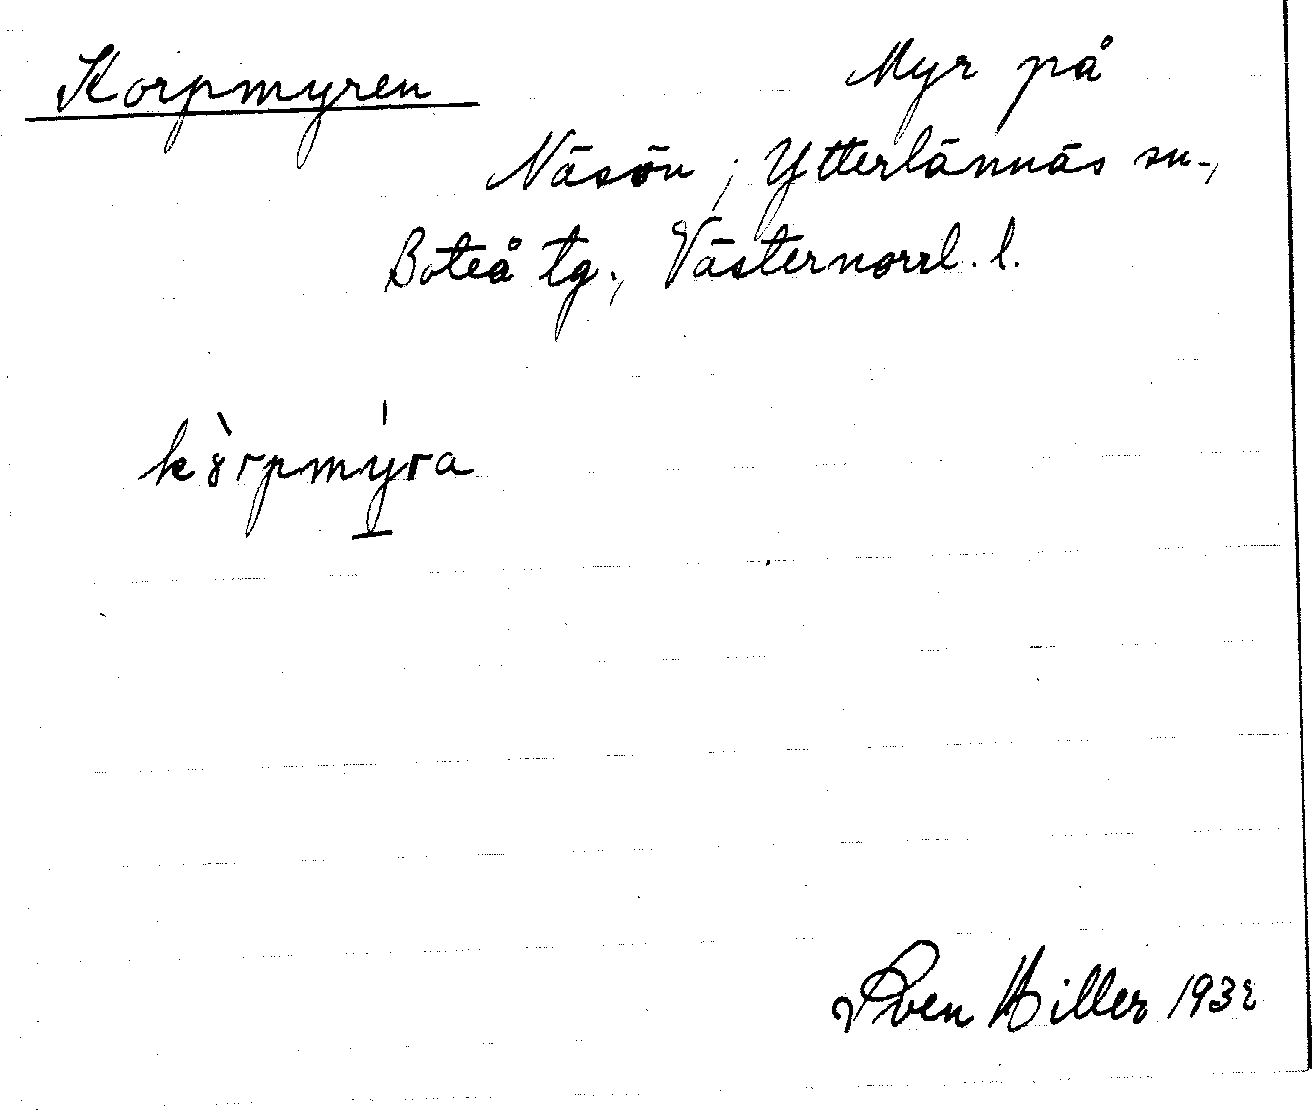 Korpmyren
Myr på
Näsön, Ytterlännäs sn.,
Boteå tg., Västernorrl. l.
kòrpmý̱ra
Sven Hiller 1932